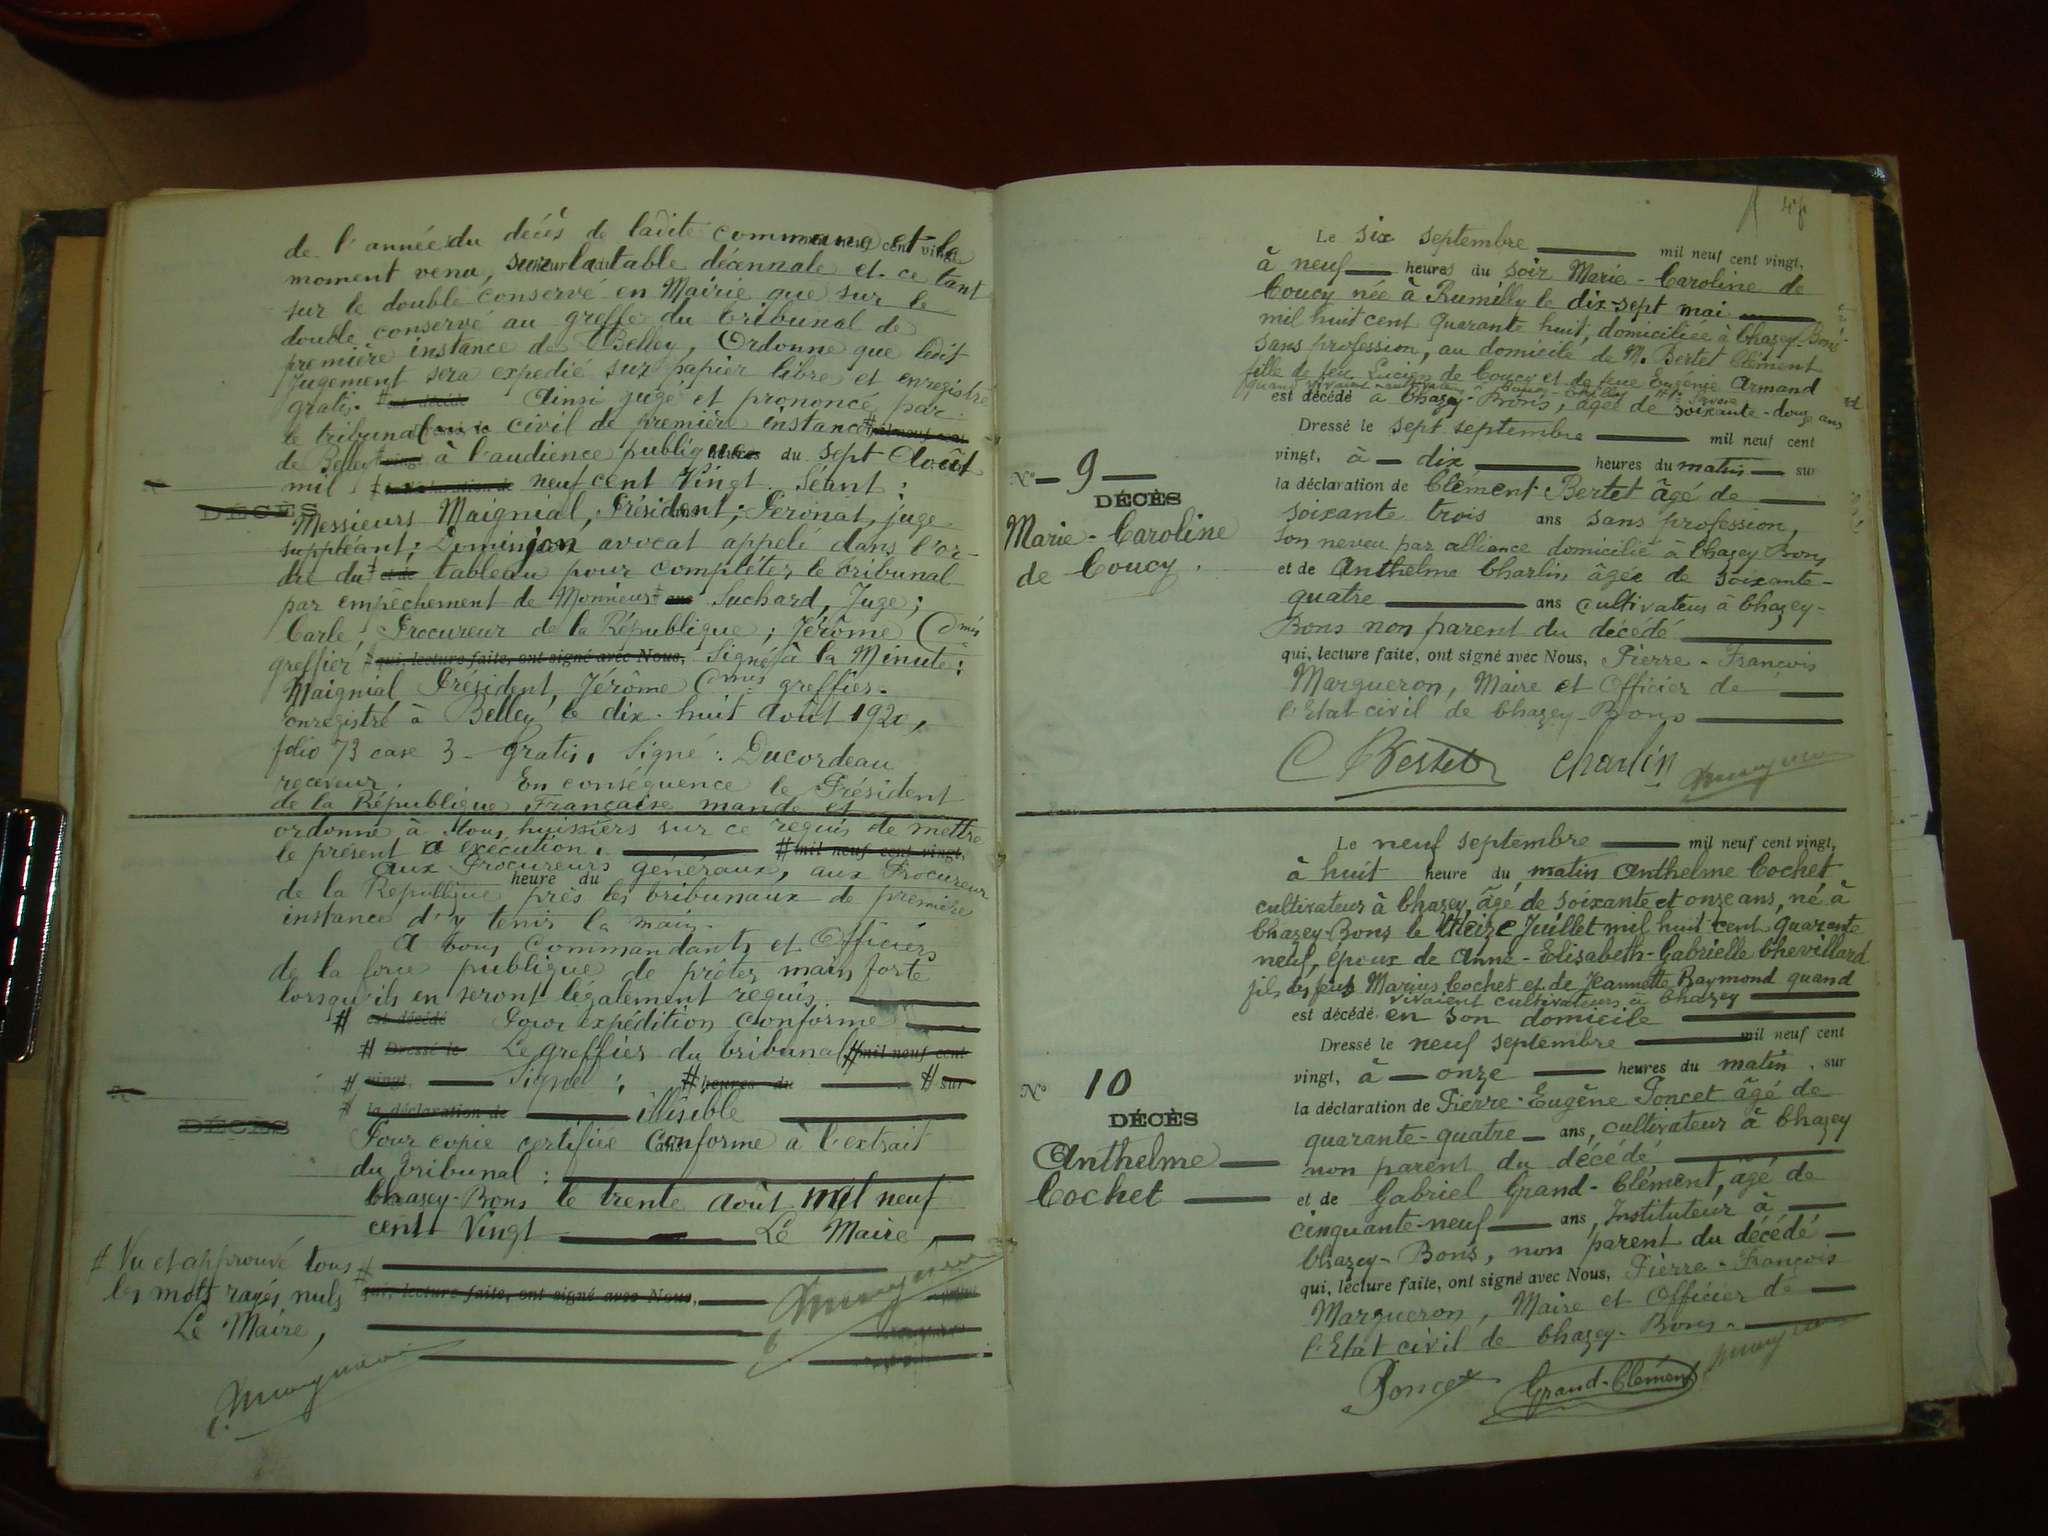 de l'année du décès de ladite commune et le
moment venu, sur la table décennale et ce tant
sur le double conservé en Mairie que sur le
double conservé au greffe du tribunal de
première instance de Belley, Ordonne que ledit
Jugement sera expedié sur papier libre et enregistré
gratis. # est décédé Ainsi jugé et prononcé par
le tribunal civil de première instance
de Belley # vingt à l'audience publique du sept Août
mil # la déclaration de neuf cent Vingt. Séant :
DÉCÈS
Messieurs Maignial, Président; Peronat, juge
suppléant; Leminjon avocat appelé dans l'or-
dre du # et de tableau pour compléter le tribunal
par empêchement de Monsieur # ans Suchard, Juge;
Carle, Procureur de la République; Jérôme Cmis
greffier # qui, lecture faite, ont signé avec Nous, Signé à la Minute :
Maignial Président, Jérôme Cmis greffier.
enregistré à Belley le dix-huit août 1920,
folio 73 case 3 - Gratis, Signé : Ducordeau
receveur. En conséquence le Président
de la République Française mande et
ordonne à tous huissiers sur ce requis de mettre
le présent à exécution. # mil neuf cent vingt,
aux Procureurs généraux, aux Procureurs
heure du
de la République près les tribunaux de première
instance d'y tenir la main.
A tous Commandants et Officiers
de la force publique de prêter main forte
lorsqu'ils en seront légalement requis.
# est décédé Pour expédition conforme
# Dressé le Le greffier du tribunal # mil neuf cent
# vingt, Signé : # heures du # sur
# la déclaration de illisible
DÉCÈS
Pour copie certifiée conforme à l'extrait
du tribunal :
Chazey-Bons le trente août mil neuf
cent Vingt Le Maire,
# Vu et approuvé tous #
les mots rayés nuls qui, lecture faite, ont signé avec Nous,
Le Maire,
48
Le six septembre mil neuf cent vingt,
à neuf heures du soir Marie-Caroline de
Coucy née à Rumilly le dix-sept mai
mil huit cent quarante huit, domiciliée à Chazey-Bons
sans profession, au domicile de M. Bertet Clément
fille de feu Lucien de Coucy et de feue Eugénie Armand
quand vivaient
est décédé à Chazey-Bons, âgée de soixante-douze ans
Dressé le sept septembre mil neuf cent
vingt, à dix heures du matin sur
la déclaration de Clément Bertet âgé de
soixante trois ans sans profession,
son neveu par alliance domicilié à Chazey Bons
et de Anthelme Charlin âgée de soixante-
quatre ans cultivateur à Chazey-
Bons non parent du décédé
qui, lecture faite, ont signé avec Nous, Pierre-François
Margueron, Maire et Officier de
l'Etat civil de Chazey-Bons
No 9
DÉCÈS
Marie-Caroline
de Coucy.
C Bertet Charlin
Le neuf septembre mil neuf cent vingt,
à huit heure du matin Anthelme Cochet
cultivateur à Chazey, âgé de soixante et onze ans, né à
Chazey-Bons le treize Juillet mil huit cent quarante
neuf, époux de Anne-Elisabeth-Gabrielle Chevillard
fils des feus Marius Cochet et de Jeannette Raymond quand
vivaient cultivateurs à Chazey
est décédé en son domicile
Dressé le neuf septembre mil neuf cent
vingt, à onze heures du matin, sur
la déclaration de Pierre-Eugène Poncet âgé de
quarante-quatre ans, cultivateur à Chazey
non parent du décédé
et de Gabriel Grand-Clément, âgé de
cinquante-neuf ans, Instituteur à
Chazey-Bons, non parent du décédé
qui, lecture faite, ont signé avec Nous, Pierre-François
Margueron, Maire et Officier de
l'Etat civil de Chazey-Bons.
No 10
DÉCÈS
Anthelme
Cochet
Poncet Grand-Clément